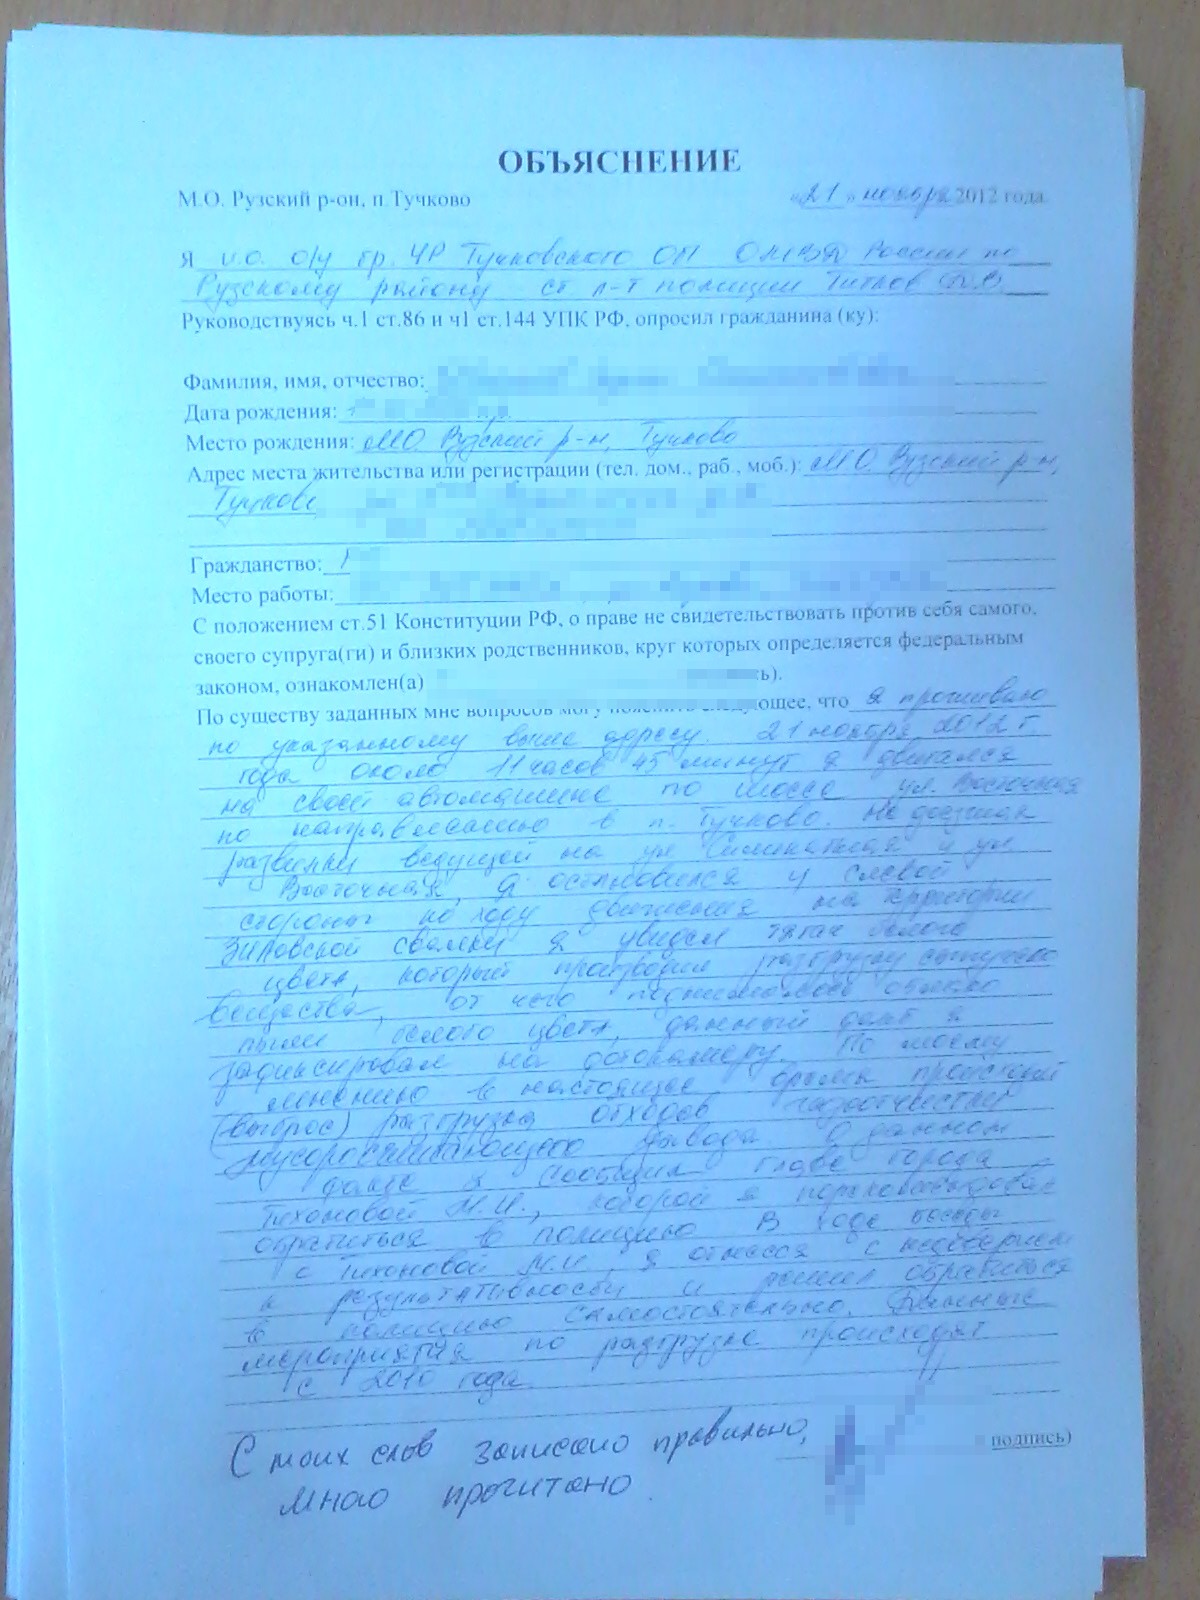 ОБЪЯСНЕНИЕ
М.О. Рузский р-он, п.Тучково «21» ноября 2012 года.
Я и.о. о/у гр. УР Тучковского ОП ОМВД России по
Рузскому району ст. л-т полиции Титков
Руководствуясь ч.1 ст.86 и ч1 ст.144 УПК РФ, опросил гражданина (ку):
Фамилия, имя, отчество:
Дата рождения:
Место рождения: МО. Рузский р-н, Тучково
Адрес места жительства или регистрации (тел. дом., раб., моб.): МО. Рузский р-н,
Тучково
Гражданство:
Место работы:
С положением ст.51 Конституции РФ, о праве не свидетельствовать против себя самого,
своего супруга(ги) и близких родственников, круг которых определяется федеральным
законом, ознакомлен(а)
По существу заданных мне вопросов могу пояснить следующее, что я проживаю
по указанному выше адресу. 21 ноября 2012 г.
года около 11 часов 45 минут я двигался
на своей автомашине по шоссе ул. Восточная
по направлению в п. Тучково. Не доезжая
развилки ведущей на ул. Силикатная и ул.
Восточная, я остановился и с левой
стороны по ходу движения на территории
Зиловской свалки я увидел тягач белого
цвета, который производил разгрузку сыпучего
вещества, от чего поднималось облако
пыли белого цвета, данный факт я
зафиксировал на фотокамеру. По моему
мнению в настоящее время происходит
(выброс) разгрузка отходов газоочистки
мусоросжигающего завода. О данном
факте я сообщил главе города
Тихоновой М.И., которой я порекомендовал
обратиться в полицию. В ходе беседы
с Тихоновой М.И. я отнесся с недоверием
к результативности и решил обратиться
в полицию самостоятельно. Данные
мероприятия по разгрузке происходят
с 2010 года.
С моих слов записано правильно,
мною прочитано. подпись)